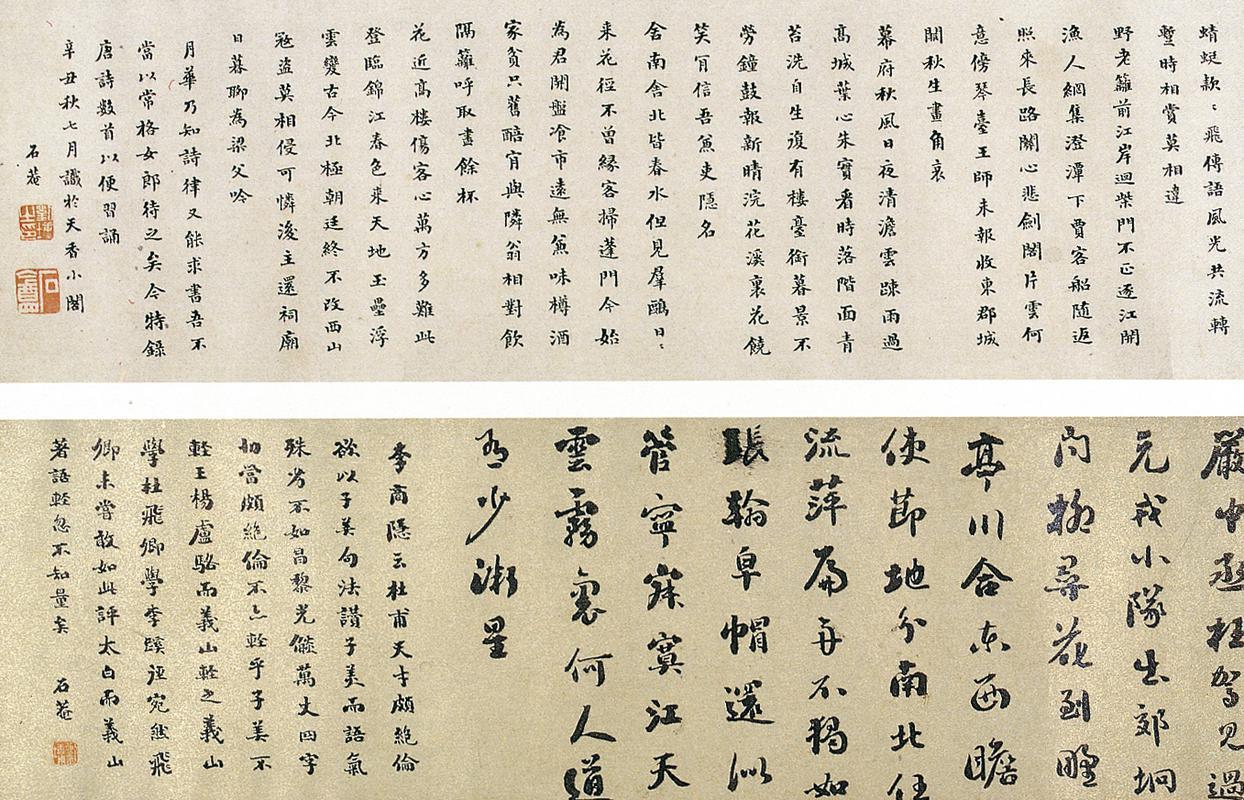 蜻蜓款〻飛傳語風光共流轉
暫時相賞莫相違
野老籬前江岸迴柴門不正逐江開
漁人網集澄潭下賈客船隨返
照來長路關心悲劍閣片雲何
意傍琴臺王師未報收東郡城
闕秋生畫角哀
幕府秋風日夜清澹雲疎雨過
高城葉心朱實看時落階面青
苔洗自生復有樓臺銜暮景不
勞鐘鼓報新晴浣花溪裏花饒
笑肎信吾兼吏隱名
舍南舍北皆春水但見羣鷗日〻
来花徑不曾緣客掃蓬門今始
為君開盤飱市遠無兼味樽酒
家貧只舊醅肎與隣翁相對飲
隔籬呼取盡餘杯
花近高樓傷客心萬方多難此
登臨錦江春色來天地玉壘浮
雲變古今北極朝廷終不改西山
寇盜莫相侵可憐後主還祠廟
日暮聊為梁父吟
月華乃知詩律又能求書吾不
當以常格女郎待之矣今特錄
唐詩數首以便習誦
辛丑秋七月識於天香小閣
石菴
嚴中丞枉駕見過
元戎小隊出郊坰
問柳尋花到野
亭川合東西瞻
使節地分南北任
流萍扁舟不獨如
張翰皁帽還似
管寧寂寞江天
雲霧裏何人道
有少微星
李商隱云杜甫天才頗絕倫
欲以子美句法讚子美而語氣
殊劣不如昌黎光燄萬丈四字
初當頗絕倫不亦輕乎子美不
輕王楊盧駱而義山輕之義山
學杜飛卿學李蹊徑宛然飛
卿未嘗敢如此評太白而義山
著語輕忽不知量矣
石菴